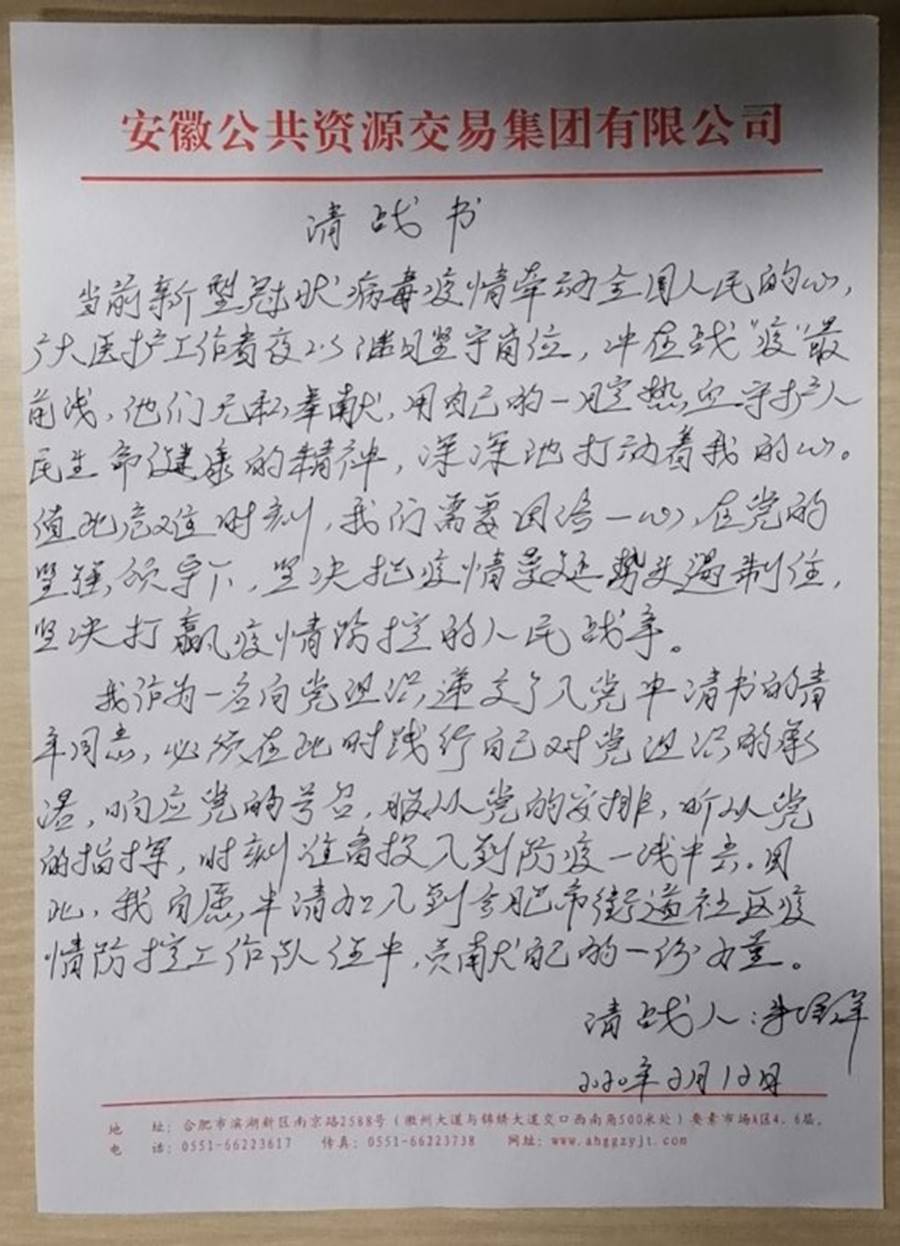 安徽公共资源交易集团有限公司
请战书
当前新型冠状病毒疫情牵动全国人民的心，
广大医护工作者夜以继日坚守岗位，冲在战“疫”最
前线，他们无私奉献，用自己的一腔热血守护人
民生命健康的精神，深深地打动着我的心。
值此危难时刻，我们需要团结一心，在党的
坚强领导下，坚决把疫情蔓延势头遏制住，
坚决打赢疫情防控的人民战争。
我作为一名向党组织递交了入党申请书的青
年同志，必须在此时践行自己对党组织的承
诺，响应党的号召，服从党的安排，听从党
的指挥，时刻准备投入到防疫一线中去。因
此，我自愿申请加入到合肥市街道社区疫
情防控工作队伍中，贡献自己的一份力量。
请战人：
2020年2月12日
地 址：合肥市滨湖新区南京路2588号（徽州大道与锦绣大道交口西南角500米处）要素市场A区4、6层。
电 话：0551-66223617 传真：0551-66223738 网址：www.ahggzyjt.com